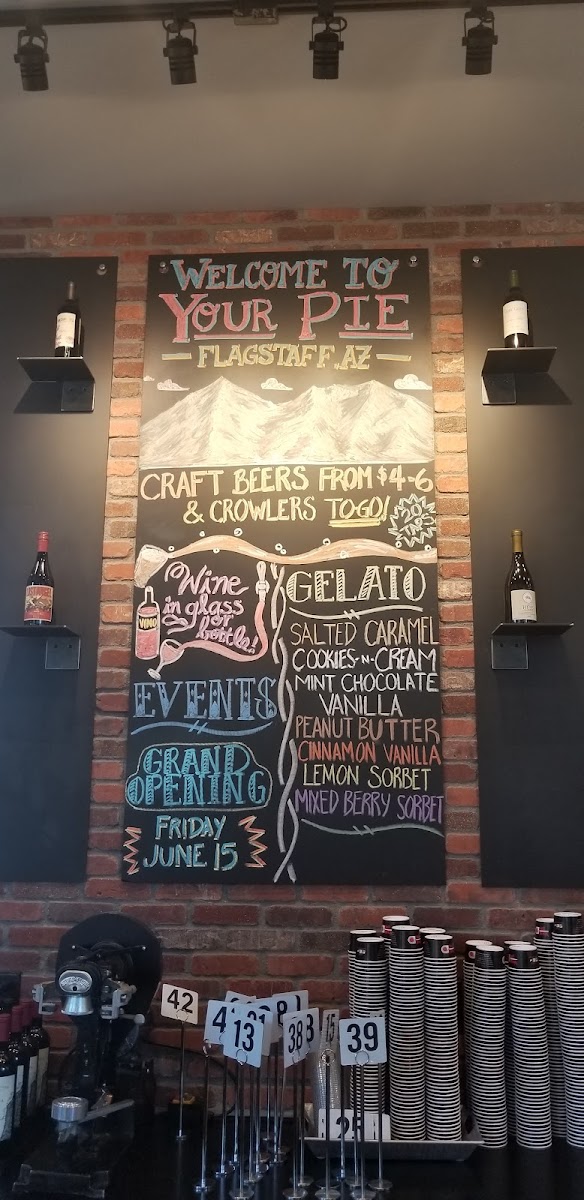 WELCOME TO
YOUR PIE
— FLAGSTAFF, AZ —
CRAFT BEERS FROM $4-6
& CROWLERS TO GO!
20
TAPS
Wine
in glass
or
bottle!
VINO
EVENTS
GRAND
OPENING
FRIDAY
JUNE 15
GELATO
SALTED CARAMEL
COOKIES-N-CREAM
MINT CHOCOLATE
VANILLA
PEANUT BUTTER
CINNAMON VANILLA
LEMON SORBET
MIXED BERRY SORBET
42
13
38
15
39
25